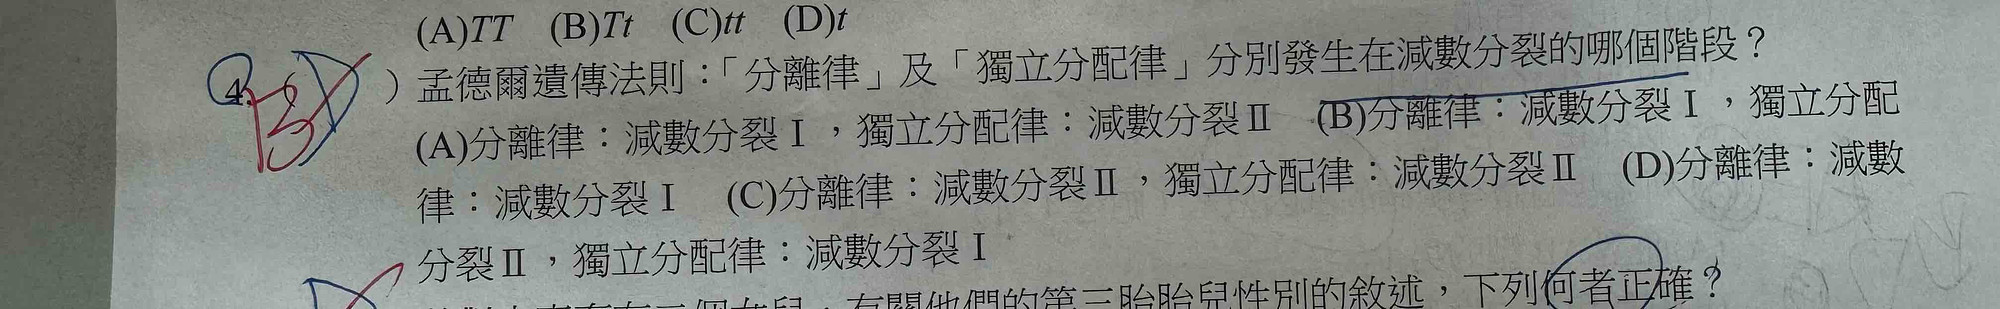 (A)TT (B)Tt (C)tt (D)t
4. BD )孟德爾遺傳法則：「分離律」及「獨立分配律」分別發生在減數分裂的哪個階段？
(A)分離律：減數分裂Ⅰ，獨立分配律：減數分裂Ⅱ (B)分離律：減數分裂Ⅰ，獨立分配
律：減數分裂Ⅰ (C)分離律：減數分裂Ⅱ，獨立分配律：減數分裂Ⅱ (D)分離律：減數
分裂Ⅱ，獨立分配律：減數分裂Ⅰ
有關他們的第三胎胎兒性別的敘述，下列何者正確？